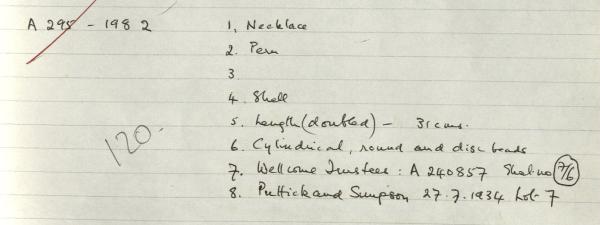 A 295 - 1982
1. Necklace
2. Peru
3.
4. Shell
5. Length (doubled) - 31 cms.
6. Cylindrical, round and disc beads
120.
7. Wellcome Trustees : A 240857 7/6
8. Puttick and Simpson 27.7.1934 Lot 7